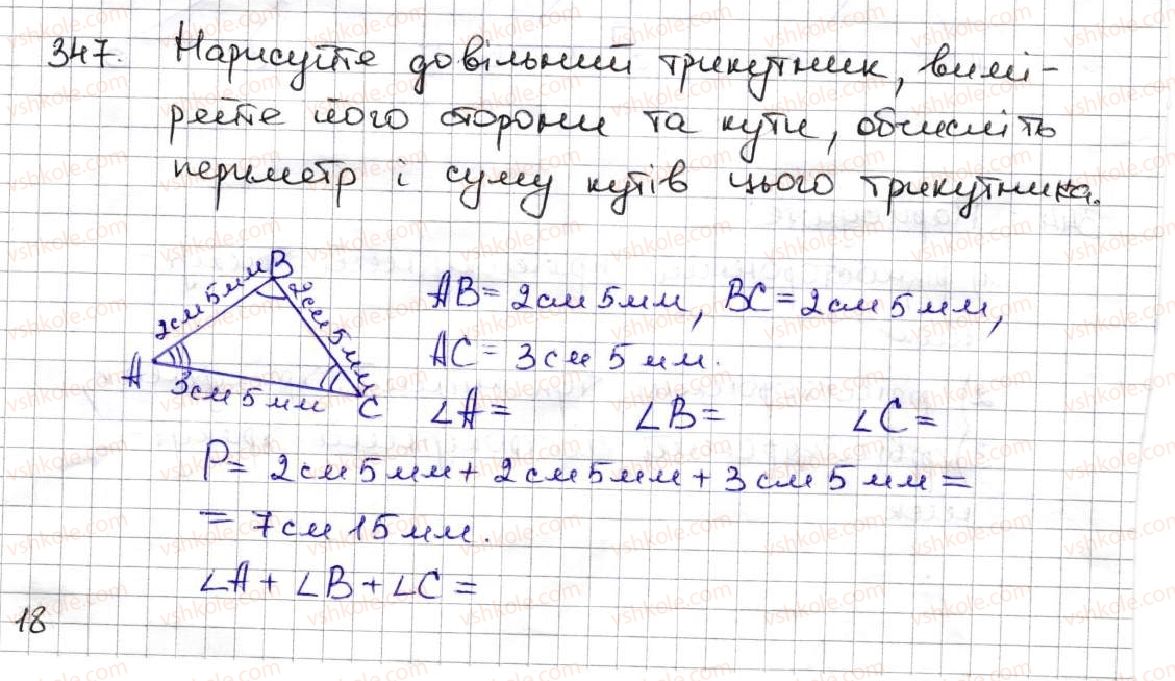 347. Нарисуйте довільний трикутник, вимі-
ряйте його сторони та кути, обчисліть
периметр і суму кутів цього трикутника.
B
2см 5мм
2см 5мм
A
3см 5 мм
C
AB = 2см 5мм, BC = 2см 5мм,
AC = 3см 5 мм.
∠A = ∠B = ∠C =
P = 2см 5мм + 2см 5мм + 3см 5мм =
= 7см 15мм.
∠A + ∠B + ∠C =
18